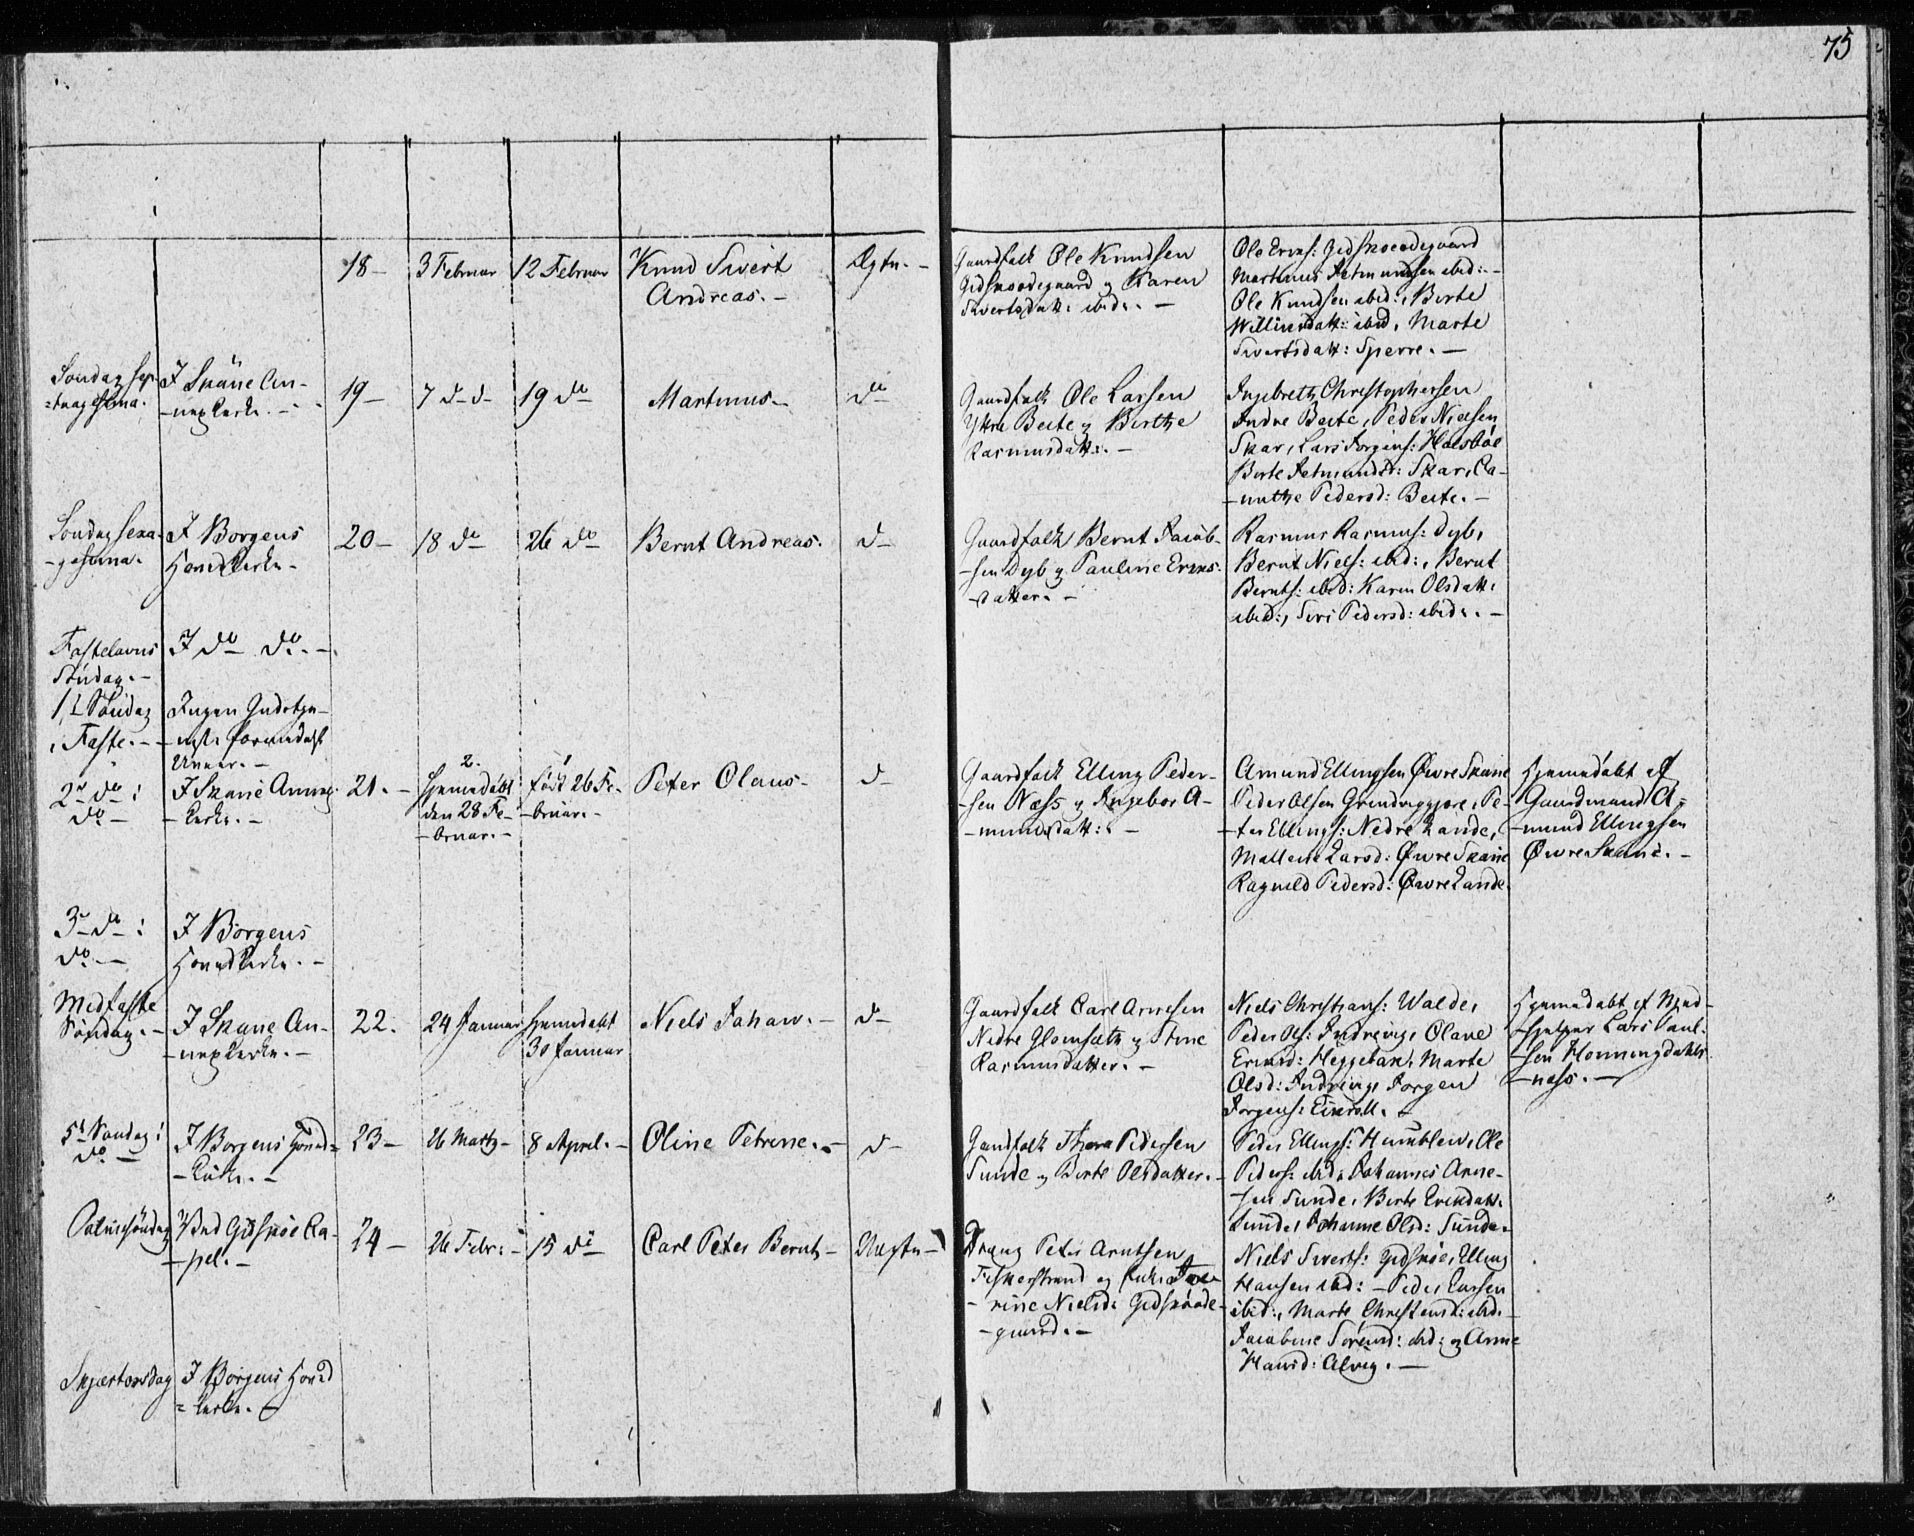 75
18 –
3 Februar
12 Februar
Knud Sivert
Andreas. –
Ægte. –
Gaardfolk Ole Knudsen
Gidskoodegaard og Karen
Sivertsdatt: ibid:. –
Ole Erixs: Gidskoodegaard
Marthinus Jetmundsen ibid: –
Ole Knudsen ibid:, Berte
Willumsdatt: ibid, Marte
Sivertsdatt: Sperre. –
Søndag Sep-
=tuagesima.
I Skåne An-
-nexkerke. –
19 –
7 d– d–
19 do
Martinus –
do
Gaardfolk Ole Larsen
Yttre Beite og Berthe
Rasmusdatt:. –
Ingebreth Christophersen
Indre Beite, Peder Nielsen
Skar, Lars Jorgens: Halsbøe
Berte Jetmundsd: Skar, Ca-
-nuthe Pedersd: Beite. –
Søndag Sexa-
-gesima.
I Borgens
Hovedkerke –
20 –
18 do
26 do
Bernt Andreas.
d–
Gaardfolk Bernt Jacob-
-sen Dyb og Pauline Erixs-
-datter. –
Rasmus Rasmus: Dyb,
Bernt Niels: ibid:, Bernt
Bernts: ibid: Karen Olsdatt:
ibid:, Siri Pedersd: ibid:. –
Fastelavns
Søndag. –
I do do. –
1ste Søndag
i Faste. –
Ingen Gudstje-
-neste formedelst
Uveir. –
2den do i
do –
I Skane Annex-
-kerke. –
21. –
2.
Hjemedøbt
den 28 Fe-
-bruar. –
1
født 26 Fe-
-bruar. –
Peter Olaus –
d–
Gaardfolk Elling Peder-
-sen Næss og Ingebor A-
-mundsdatt:. –
Amund Ellingsen Øvre Skane
Peder Olsen, Pe-
-ter Ellings: Nedre Lande,
Mallene Larsd: Øvre Skane
Ragneld Pedersd: Øvre Lande
Hjemedøbt af
Gaardmand A-
-mund Ellingsen
Øvre Skane. –
3die do i
do –
I Borgens
Hovedkerke. –
Midfaste
Søndag. –
I Skane An-
-nexkerke. –
22.
24 Januar
Hjemedøbt
30 Januar
Niels Johan. –
d–
Gaardfolk Carl Arnesen
Nedre Glomsæth og Stine
Rasmusdatter. –
Niels Christians: Walde,
Peder Ols: Indrevig, Olave
Erixsd: Heggebak, Marte
Olsd: Indrevig, Jorgen
Jorgens: Emdall. –
Hjemedøbt af Med-
-hjelper Lars Paul-
-sen Honningdahls-
-næss. –
5te Søndag i
do –
I Borgens Hoved-
-kerke. –
23 –
26 Marts –
8 April. –
Oline Petrine. –
d–
Gaardfolk Thore Pedersen
Sunde og Berte Olsdatter. –
Peder Ellings: Humblen, Ole
Peders: ibid, Johannes Arne-
-sen Sunde, Berte Erixdatt:
Sunde, Johanne Olsd: Sunde
Palmesøndag
Ved Gidskøe Ca-
-pel. –
24 –
26 Febr: –
15 do
Carl Peter Bernt –
Uægte –
Dreng Peter Arntsen
Fiskerstrand og Pike
-rine Nielsd: Gidskoode-
-gaard. –
Niels Siverts: Gidskøe, Elling
Hansen ibid: – Peder Larsen
ibid:, Marte Christensd: ibid. –
Jacobine Sørensd: ibid: og Anne
Hansd: Alvig. –
Skjærtorsdag
I Borgens Hoved
=kerke. –